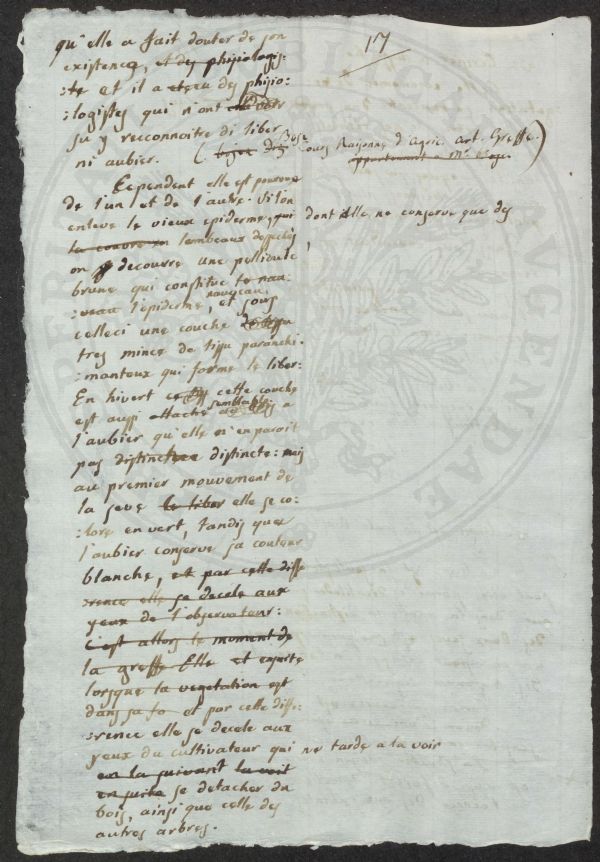 17
qu'elle a fait douter de son
existence, et des phisiologis:
:te et il a etcu des phisio:
:logistes qui n'ont
su y reconnoitre ni liber
ni aubier. ( Bosc Cours Raisonné d'Agric. art. Greffe.)
appartenant a Mr.
Cependent elle est pourvue
de l'un et de l'autre. Si l'on
enleve le vieux epiderme, qui dont il ne conserve que des
la couvre un lambeaux dessechés,
on decouvre une pellicule
brune qui constitue le nau:
:veau l'epiderme, nouveau, et sous
celleci une couche de tissu
tres mince de tissu paranchi:
:manteux qui forme le liber:
En hivert cette couche
est aussi attaché semblable a
l'aubier qu'elle n'en paroit
pas distinctere distincte: mais
au premier mouvement de
la seve le liber elle se co:
:lore en vert, tandis que
l'aubier conserve sa couleur
blanche, et par cette diffe
:rence elle se decele aux
yeux de l'observateur:
C'est allors le moment de
la greffe Elle et ensuite
lorsque la vegetation est
dans sa fo et par cette diffe:
:rence elle se decele aux
yeux du cultivateur qui ne tarde a la voir
en la suivant la voit
en suite se detacher du
bois, ainsi que celle des
autres arbres.